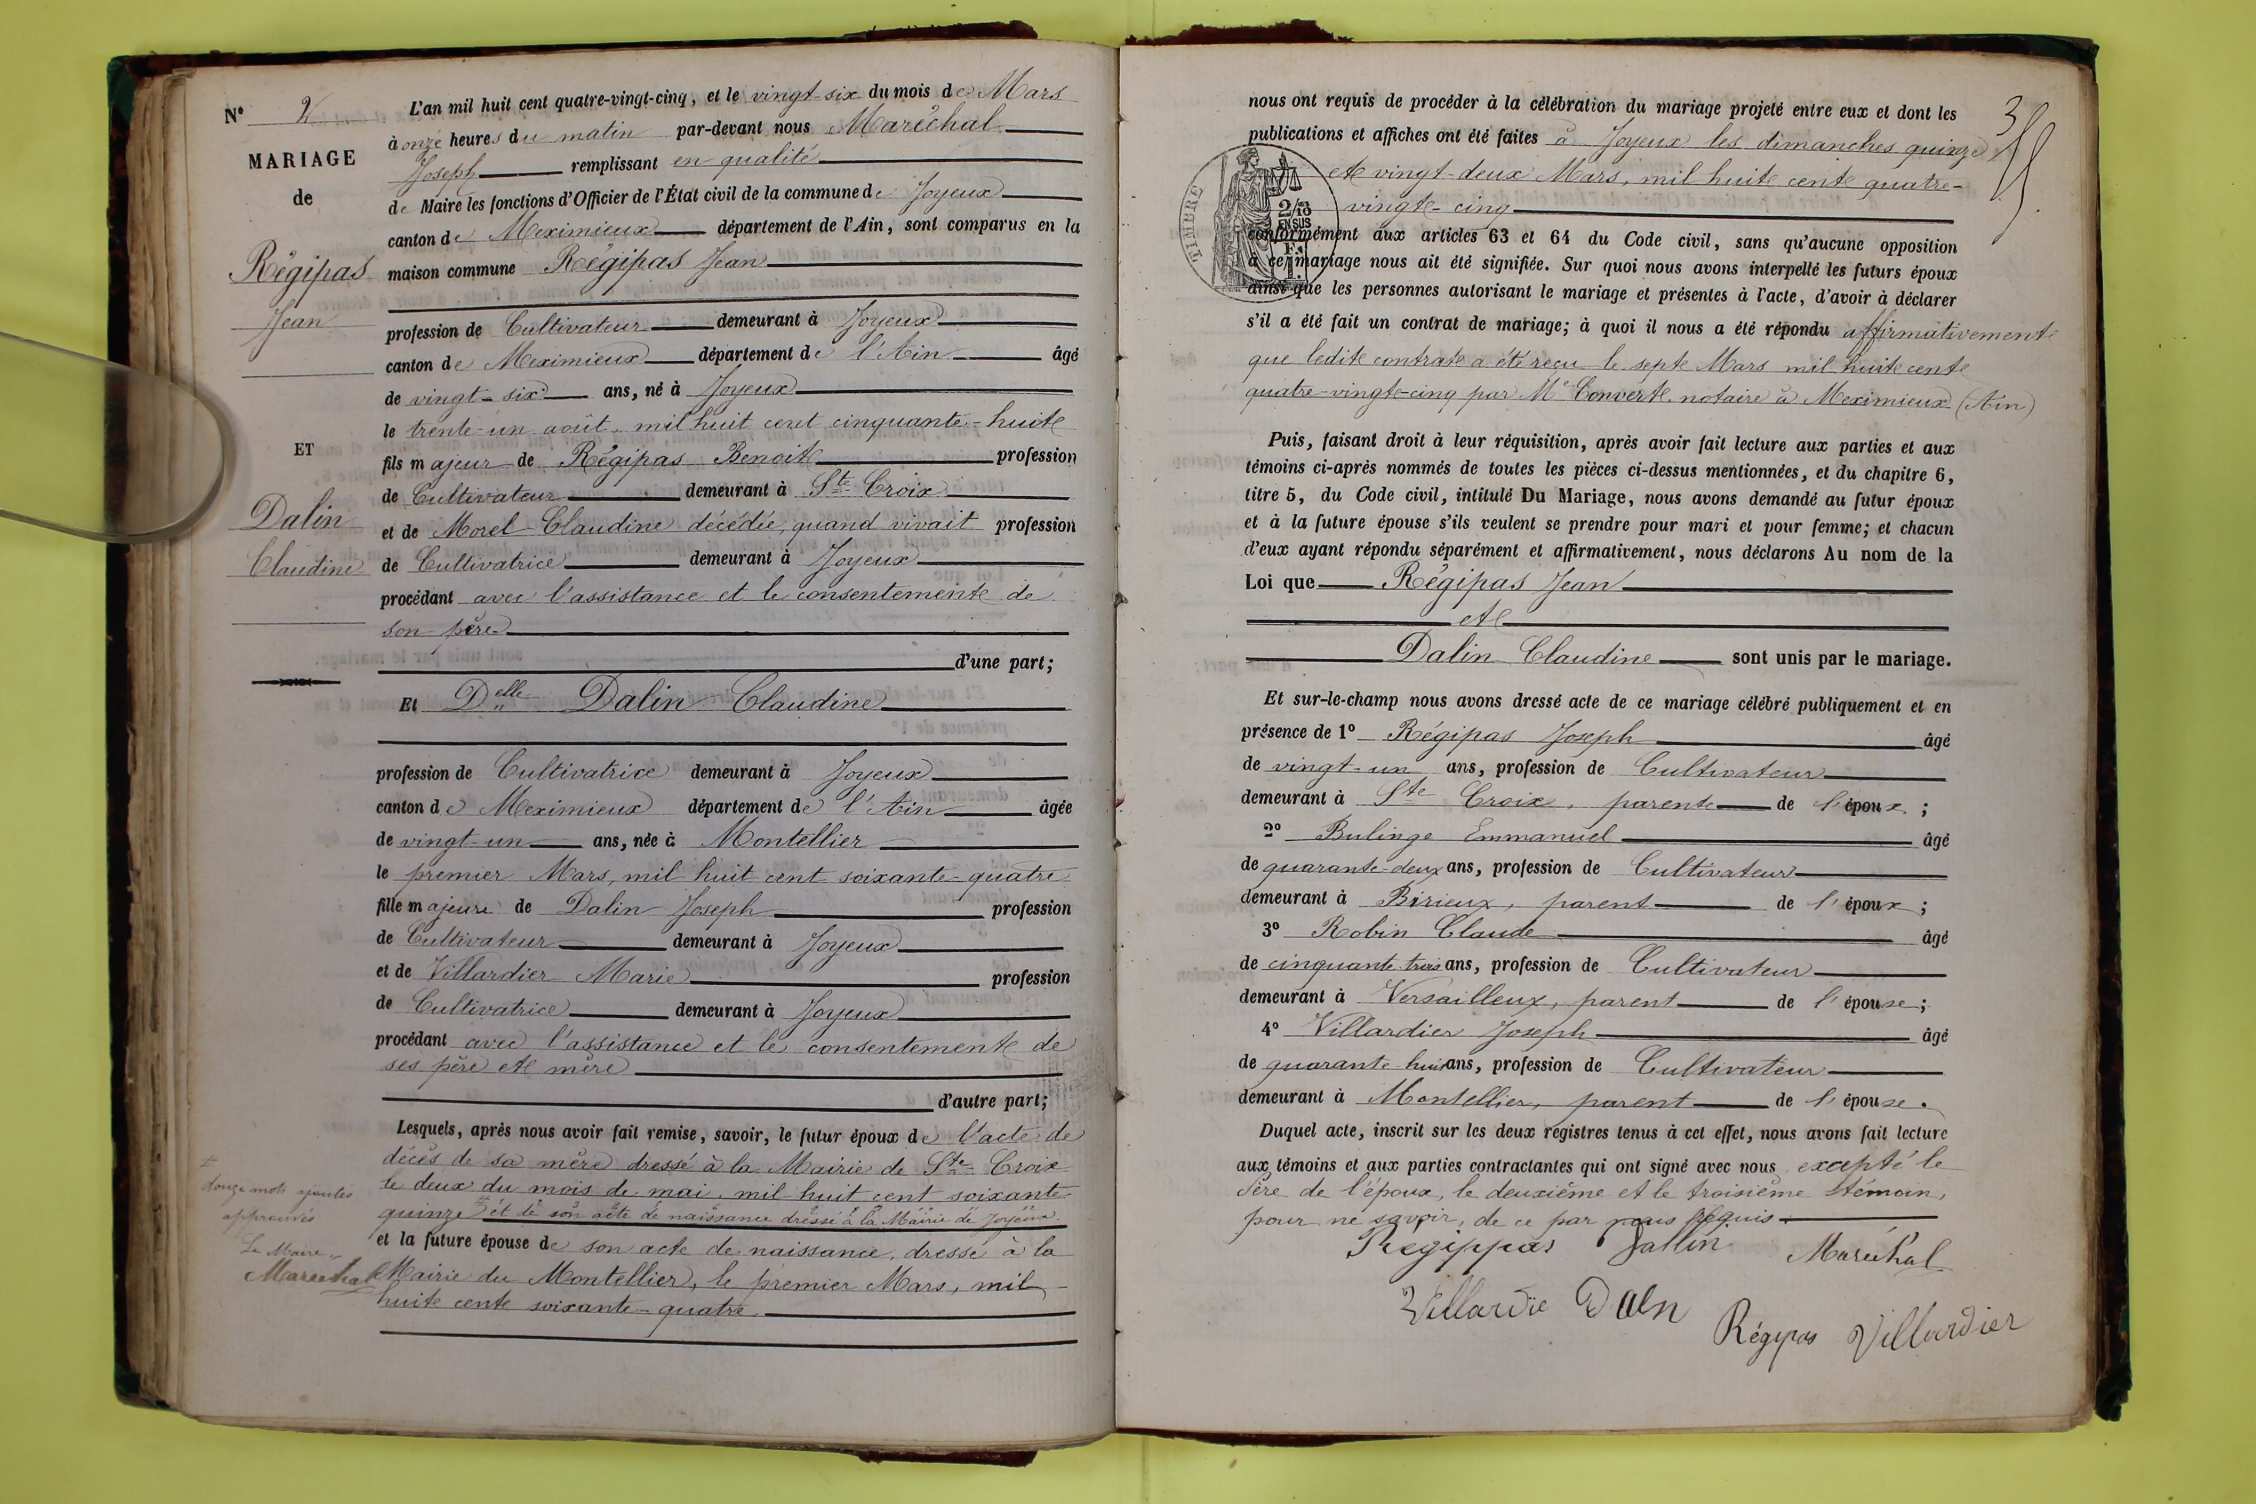 N° 2
MARIAGE
de
Régipas
Jean
ET
Dalin
Claudine
L'an mil huit cent quatre-vingt-cinq, et le vingt-six du mois de Mars
à onze heures du matin par-devant nous Maréchal
Joseph remplissant en qualité
de Maire les fonctions d'Officier de l'État civil de la commune de Joyeux
canton de Meximieux département de l'Ain, sont comparus en la
maison commune Régipas Jean
profession de Cultivateur demeurant à Joyeux
canton de Meximieux département de l'Ain âgé
de vingt-six ans, né à Joyeux
le trente-un août, mil huit cent cinquante-huit
fils majeur de Régipas Benoit profession
de Cultivateur demeurant à Ste Croix
et de Morel Claudine décédée, quand vivait profession
de Cultivatrice demeurant à Joyeux
procédant avec l'assistance et le consentement de
son père
d'une part;
Et Delle Dalin Claudine
profession de Cultivatrice demeurant à Joyeux
canton de Meximieux département de l'Ain âgée
de vingt-un ans, née à Montellier
le premier Mars, mil huit cent soixante-quatre
fille majeure de Dalin Joseph profession
de Cultivateur demeurant à Joyeux
et de Villardier Marie profession
de Cultivatrice demeurant à Joyeux
procédant avec l'assistance et le consentement de
ses père et mère
d'autre part;
Lesquels, après nous avoir fait remise, savoir, le futur époux de l'acte de
décès de sa mère dressé à la Mairie de Ste Croix
le deux du mois de mai, mil huit cent soixante-
quinze # et de son acte de naissance dressé à la Mairie de Joyeux
et la future épouse de son acte de naissance, dressé à la
Mairie du Montellier, le premier Mars, mil
huit cent soixante-quatre
#
douze mots ajoutés
approuvés
Le Maire
Maréchal
3
TIMBRE
2/10
EN SUS
nous ont requis de procéder à la célébration du mariage projeté entre eux et dont les
publications et affiches ont été faites à Joyeux les dimanches quinze
et vingt-deux Mars, mil huit cent quatre-
vingt-cinq
conformément aux articles 63 et 64 du Code civil, sans qu'aucune opposition
à ce mariage nous ait été signifiée. Sur quoi nous avons interpellé les futurs époux
ainsi que les personnes autorisant le mariage et présentes à l'acte, d'avoir à déclarer
s'il a été fait un contrat de mariage; à quoi il nous a été répondu affirmativement
que ledit contrat a été reçu le sept Mars mil huit cent
quatre-vingt-cinq par Me Convert notaire à Meximieux (Ain)
Puis, faisant droit à leur réquisition, après avoir fait lecture aux parties et aux
témoins ci-après nommés de toutes les pièces ci-dessus mentionnées, et du chapitre 6,
titre 5, du Code civil, intitulé Du Mariage, nous avons demandé au futur époux
et à la future épouse s'ils veulent se prendre pour mari et pour femme; et chacun
d'eux ayant répondu séparément et affirmativement, nous déclarons Au nom de la
Loi que Régipas Jean
et
Dalin Claudine sont unis par le mariage.
Et sur-le-champ nous avons dressé acte de ce mariage célébré publiquement et en
présence de 1° Régipas Joseph âgé
de vingt-un ans, profession de Cultivateur
demeurant à Ste Croix, parent de l'époux;
2° Bulinge Emmanuel âgé
de quarante-deux ans, profession de Cultivateur
demeurant à Birieux, parent de l'époux;
3° Robin Claude âgé
de cinquante-trois ans, profession de Cultivateur
demeurant à Versailleux, parent de l'épouse;
4° Villardier Joseph âgé
de quarante-huit ans, profession de Cultivateur
demeurant à Montellier, parent de l'épouse.
Duquel acte, inscrit sur les deux registres tenus à cet effet, nous avons fait lecture
aux témoins et aux parties contractantes qui ont signé avec nous excepté le
Père de l'époux, le deuxième et le troisième témoin,
pour ne savoir, de ce par nous requis.
Régippas Dallin Maréchal
Villardie Daln
Régipas Villardier